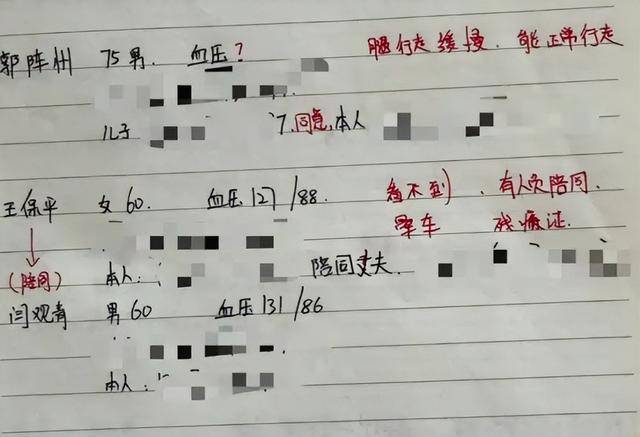 郭阵州 75男. 血压? 腿行走缓慢. 能正常行走
儿子 7.同意.本人
王保平 女60. 血压127/88. 看不到. 有人陪同.
晕车 残疾证.
(陪同) 本人: 陪同丈夫.
闫观青 男60 血压131/86
本人: